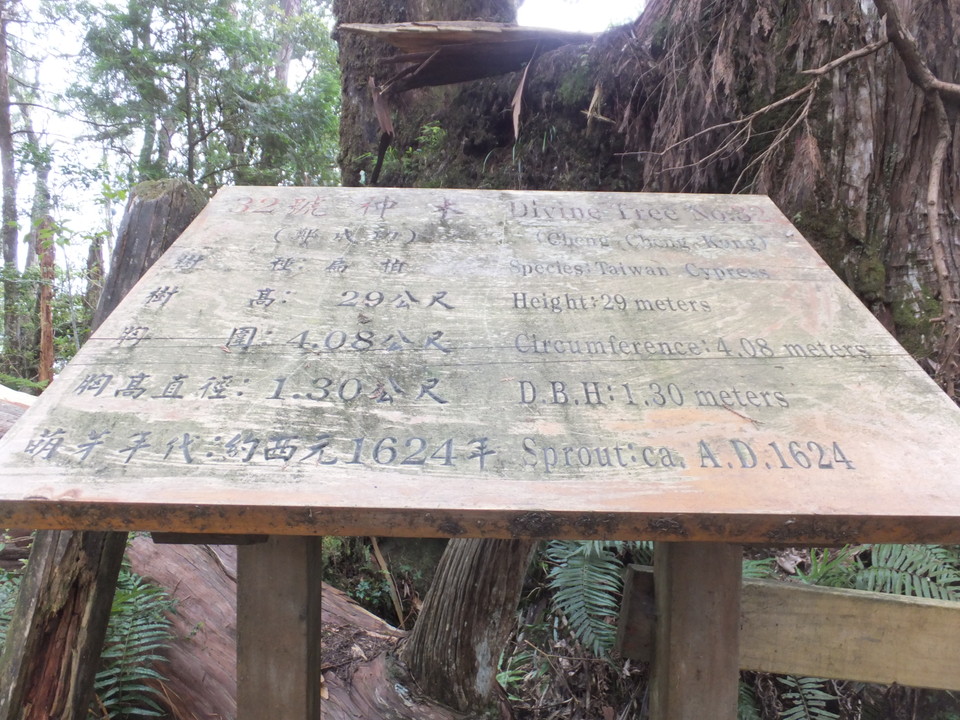 32號 神 木 Divine Tree No:32
(鄭成功) (Cheng Cheng-Kong)
樹 種:扁 柏 Species:Taiwan Cypress
樹 高: 29公尺 Height:29 meters
胸 圍: 4.08公尺 Circumference:4.08 meters
胸高直徑: 1.30公尺 D.B.H:1.30 meters
萌芽年代:約西元1624年 Sprout:ca. A.D.1624